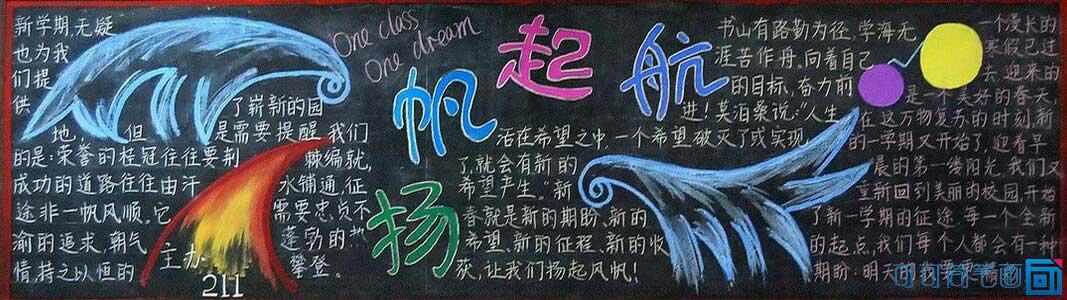 新学期,无疑
也为我
们提
供了崭新的园
地,但是需要提醒我们
的是:荣誉的桂冠往往要荆棘编就,
成功的道路往往由汗水铺通,征
途非一帆风顺。它需要忠贞不
渝的追求,朝气蓬勃的
情,持之以恒的攀登。
主办
211
One class
One dream
扬帆起航
书山有路勤为径,学海无
涯苦作舟,向着自己
的目标,奋力前
进!莫泊桑说:“人生
活在希望之中,一个希望破灭了或实现
了,就会有新的
希望产生。”新
春就是新的期盼,新的
希望,新的征程,新的收
获,让我们扬起风帆!
一个漫长的
寒假已过
去,迎来的
是一个美好的春天,
在这万物复苏的时刻,新
的一学期又开始了,迎着早
晨的第一缕阳光,我们又
重新回到美丽的校园,开始
了新一学期的征途,每一个全新
的起点,我们每个人都会有一种
期盼:明天的我要更